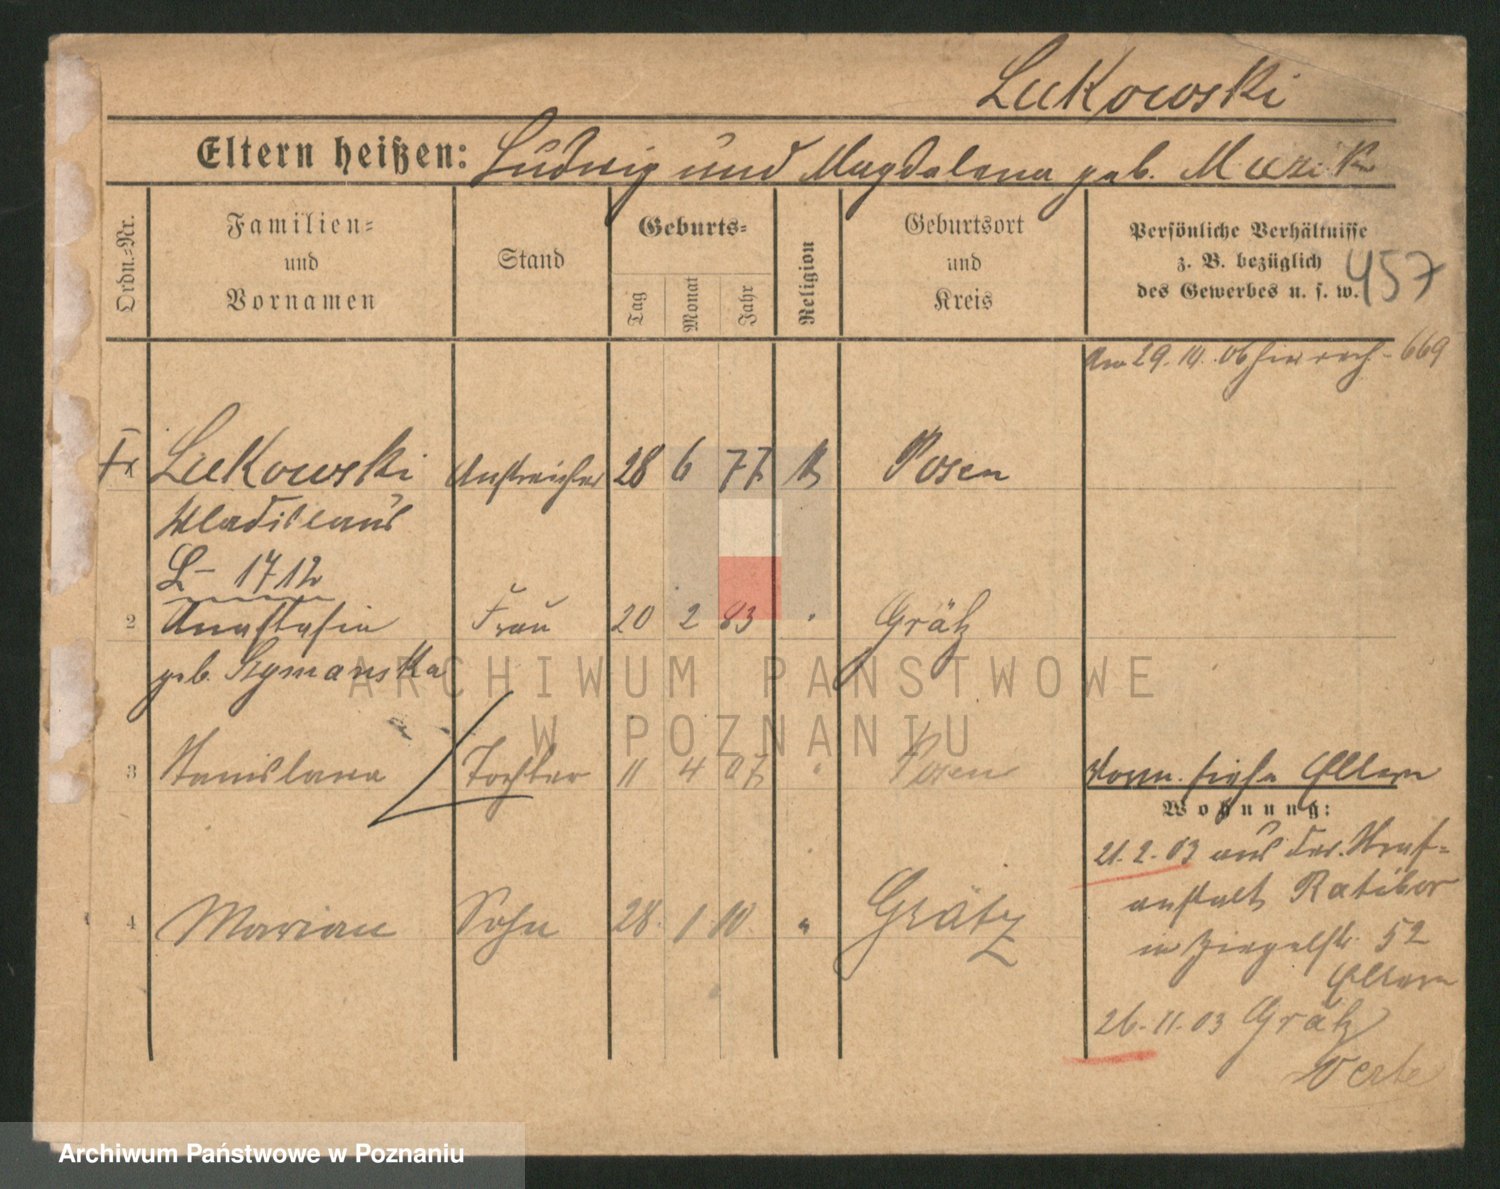 Lukowski
Eltern heißen: Ludwig und Magdalena geb. Muzik
Ordn.=Nr.
Familien=
und
Vornamen
Stand
Geburts=
Tag
Monat
Jahr
Religion
Geburtsort
und
Kreis
Persönliche Verhältnisse
z. B. bezüglich
des Gewerbes u. s. w.
457
Am 29.10.06 669
1 Lukowski Anstreicher 28 6 77 K Posen
Wladislaus
L- 1712
2 Anastasia Frau 20 2 83 " Grätz
geb. Szymanska
3 Stanislawa Tochter 11 4 07 " Posen
Vorm. siehe Eltern
Wohnung:
21.2.03 aus der Straf=
anstalt Ratibor
n. Ziegelstr. 52
Eltern
4 Marian Sohn 28 1 10 " Grätz
26.11.03 Grätz
Verte
ARCHIWUM PAŃSTWOWE
W POZNANIU
Archiwum Państwowe w Poznaniu